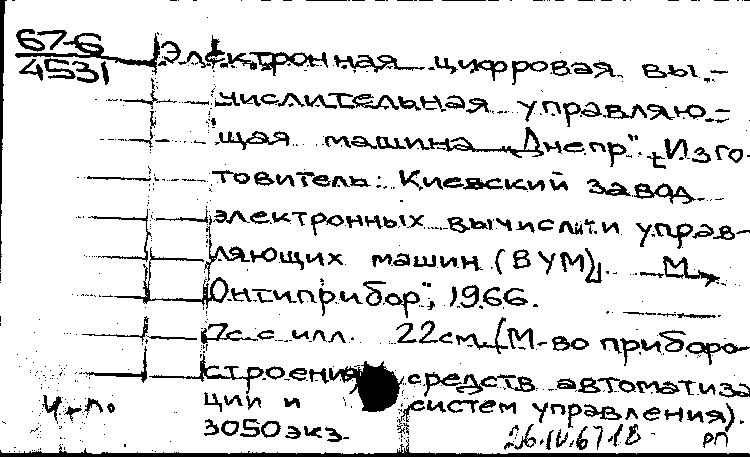 67-6
4531
Электронная цифровая вы-
числительная управляю-
щая машина „Днепр". [Изго-
товитель: Киевский завод
электронных вычислит. и управ-
ляющих машин (ВУМ)]. М.
Онтиприбор", 1966.
7с. с илл. 22см. (М-во приборо-
строения средств автоматиза
ции и систем управления).
3050экз.
Ч+п. 26.IV.67 18 РП